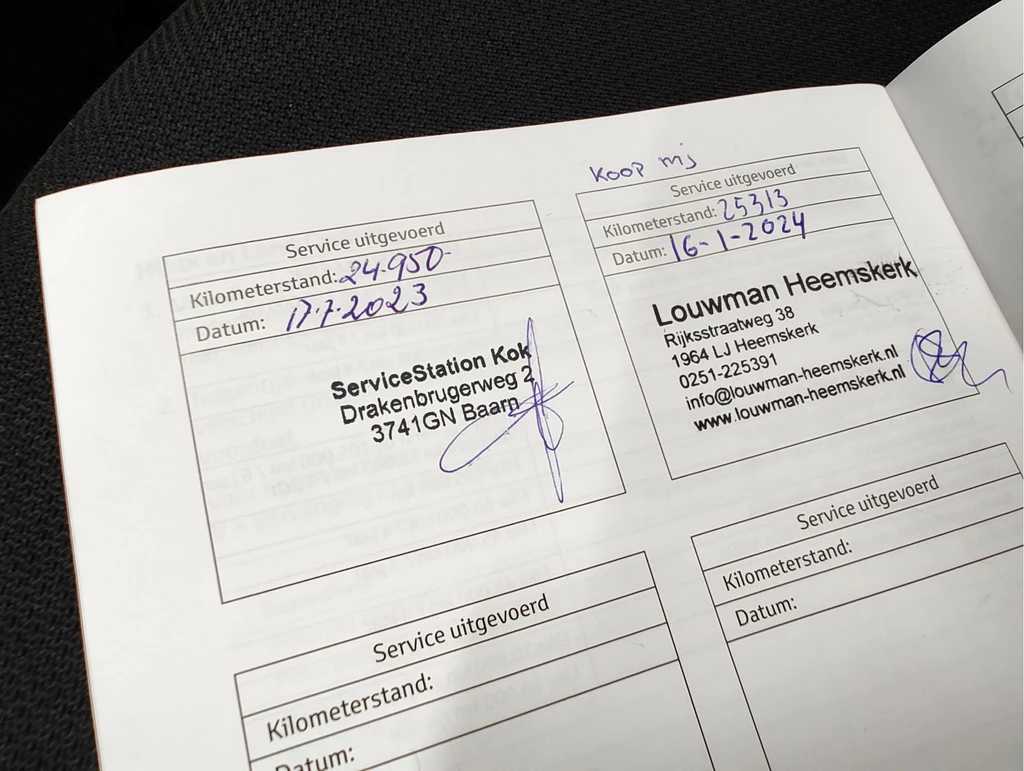 Service uitgevoerd
Kilometerstand: 24.950-
Datum: 17.7.2023
ServiceStation Kok
Drakenbrugerweg 2
3741GN Baarn
Koop mij
Service uitgevoerd
Kilometerstand: 25313
Datum: 16-1-2024
Louwman Heemskerk
Rijksstraatweg 38
1964 LJ Heemskerk
0251-225391
info@louwman-heemskerk.nl
www.louwman-heemskerk.nl
Service uitgevoerd
Kilometerstand:
Datum:
Service uitgevoerd
Kilometerstand:
Datum: